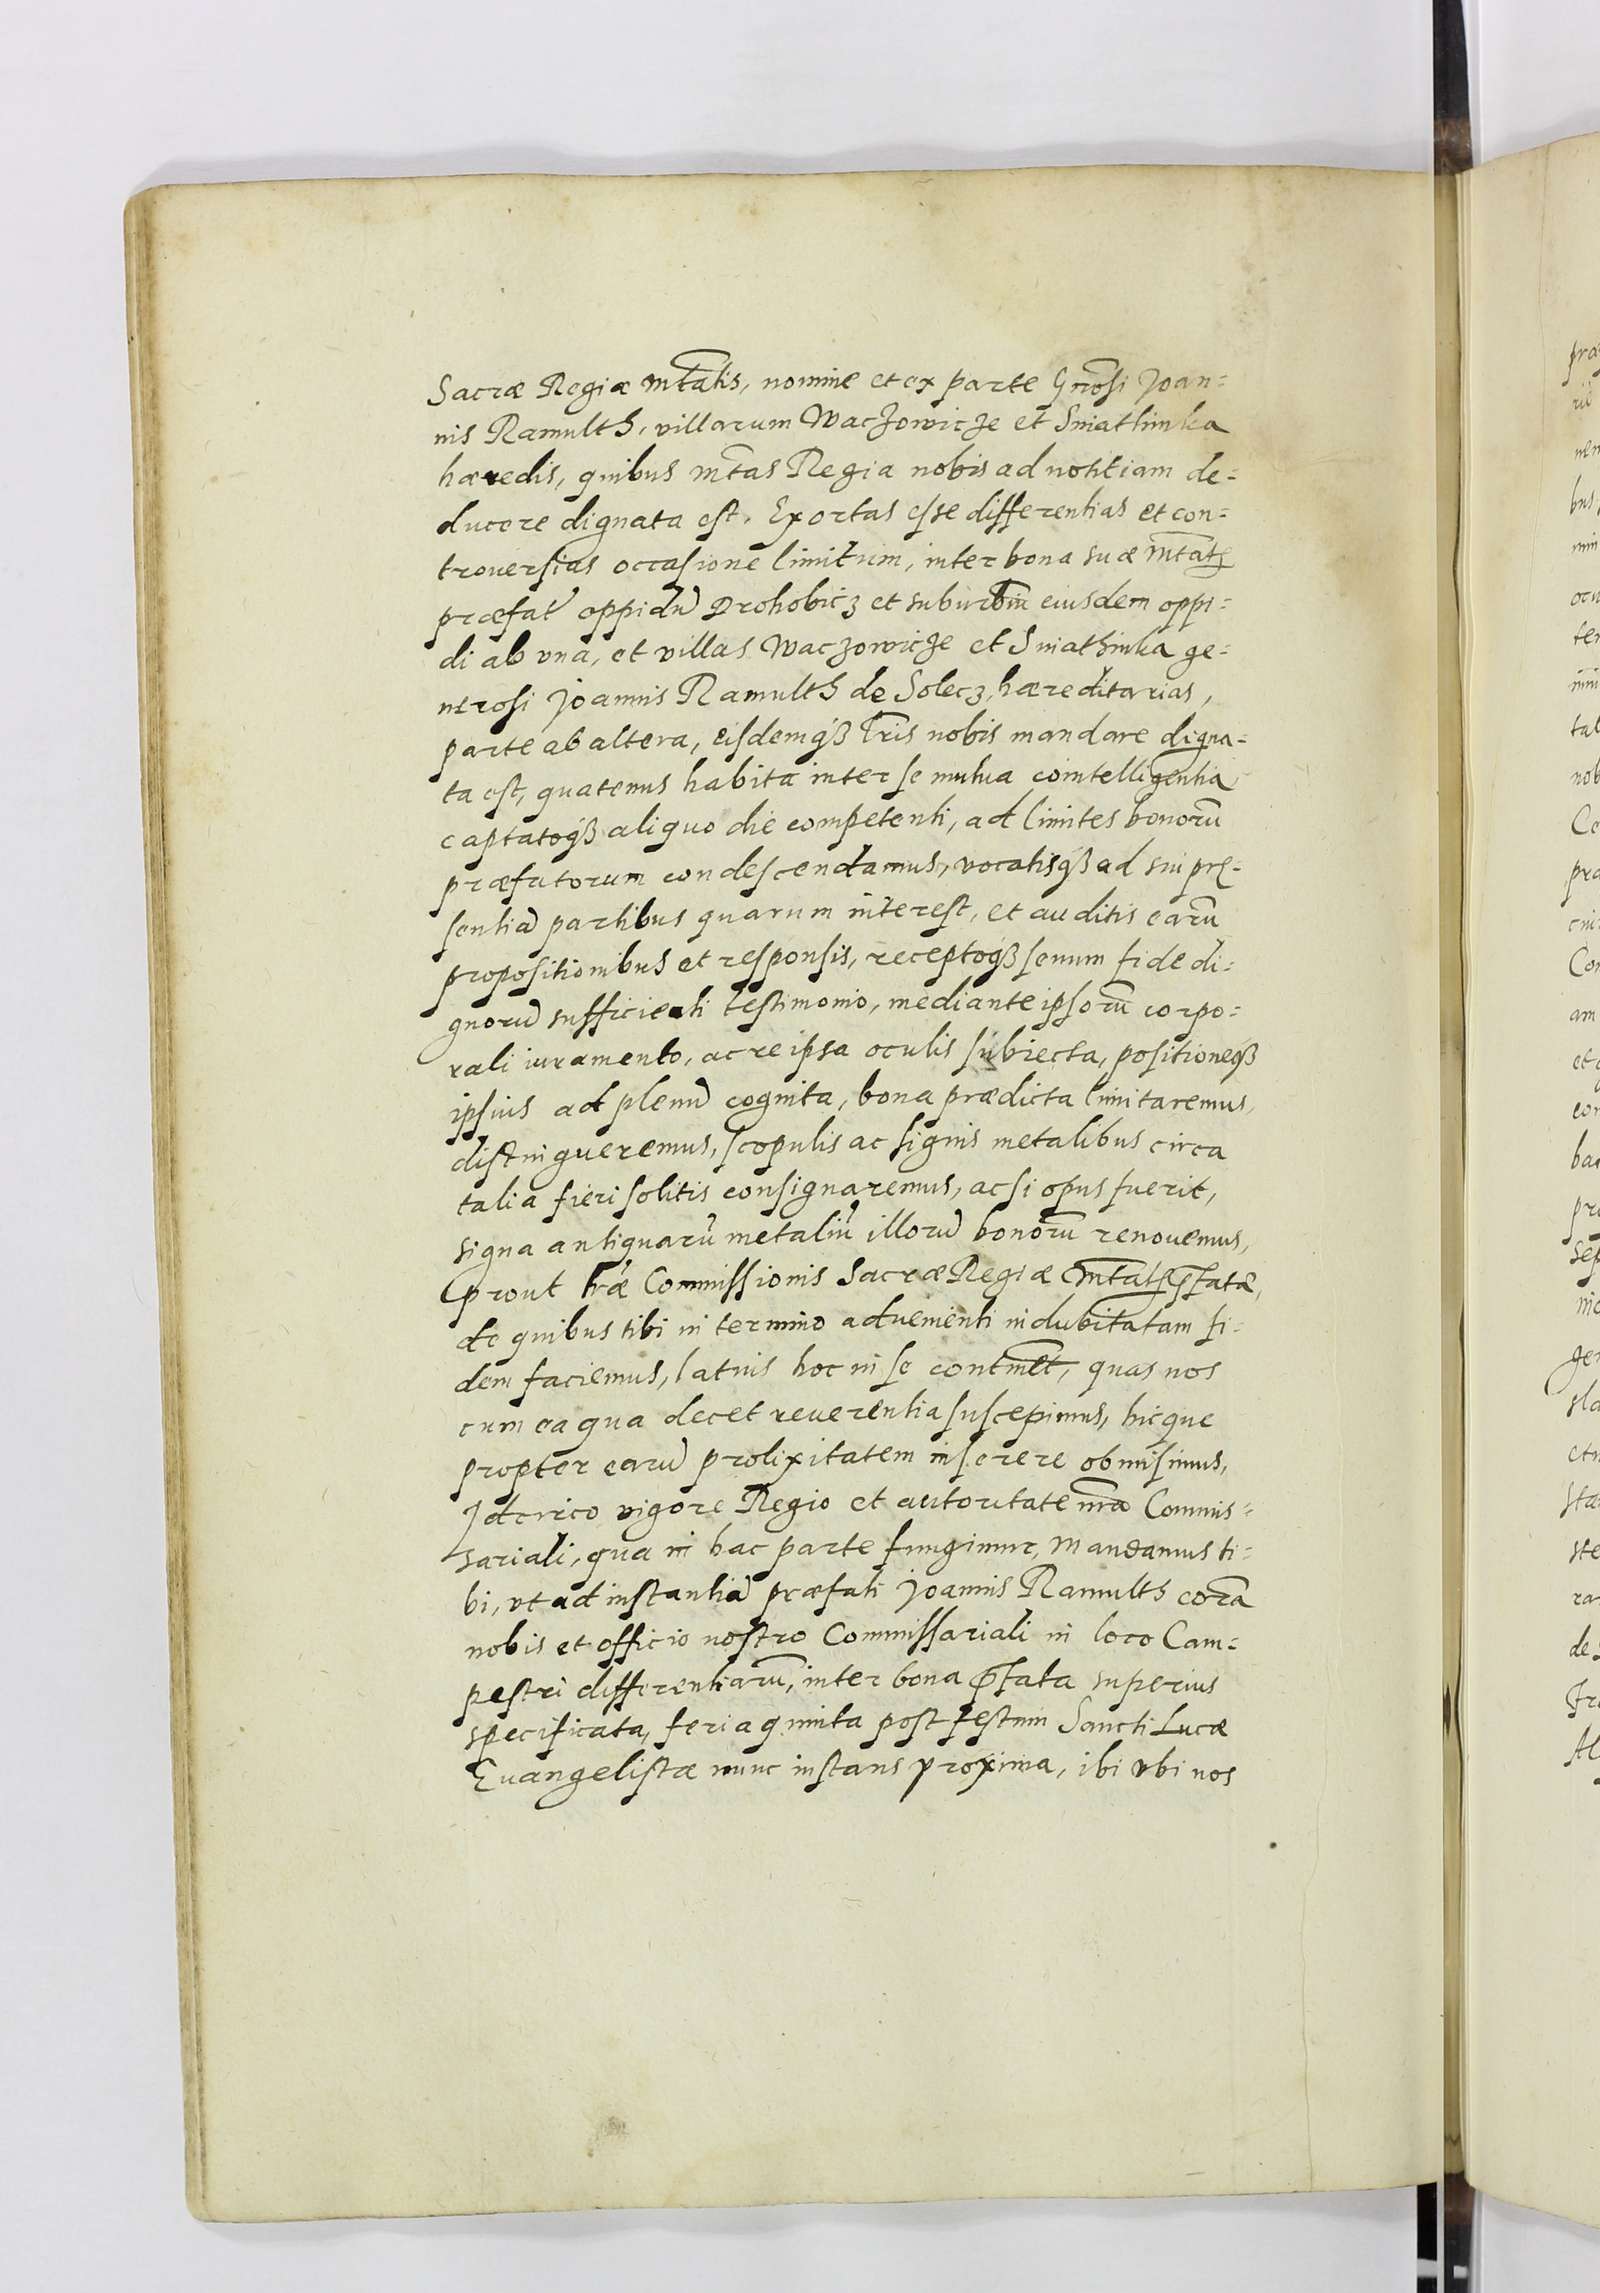 Sacræ Regiæ mtatis, nomine et ex parte Gnrosi Joan=
nis Ramulth, villarum Waczowicze et Sniathinka
hæredis, quibus mtas Regia nobis ad notitiam de=
ducere dignata est. Exortas esse differentias et con=
trouersias occasione limitum, inter bona suæ mtatis
præfat oppidū Drohobicz et suburbiū eiusdem oppi=
di ab vna, et villas Waczowicze et Sniathinka ge=
nerosi Joannis Ramulth de Solecz, hæreditarias,
parte ab altera, eisdemq3 lris nobis mandare digna=
ta est, quatenus habita inter se mutua cointelligentia
captatoq3 aliquo die competenti, ad limites bonorū
præfatorum condescendamus, vocatisq3 ad sui præ=
sentiā partibus quarum interest, et auditis earū
propositionibus et responsis, receptoq3 senum fide di=
gnorū sufficienti testimonio, mediante ipsorū corpo=
rali iuramento, ac re ipsa oculis subiecta, positioneq3
ipsius ad plenū cognita, bona prædicta limitaremus,
distingueremus, scopulis ac signis metalibus circa
talia fieri solitis consignaremus, ac si opus fuerit,
signa antiquarū metaliū illorū bonorū renouemus,
prout lræ Commissionis Sacræ Regiæ mtatis pfatæ,
de quibus tibi in termino aduenienti indubitatam fi=
dem faciemus, latius hoc in se continet, quas nos
cum ea qua decet reuerentia suscepimus, hicque
propter earū prolixitatem inserere obmisimus,
Idcirco vigore Regio et autoritate nra Commis=
sariali, qua in hac parte fungimur, Mandamus ti=
bi, vt ad instantiā præfati Joannis Ramulth corā
nobis et officio nostro Commissariali in loco Cam=
pestri differentiarū, inter bona pfata superius
specificata, feria quinta post festum Sancti Lucæ
Euangelistæ nunc instans proxima, ibi vbi nos